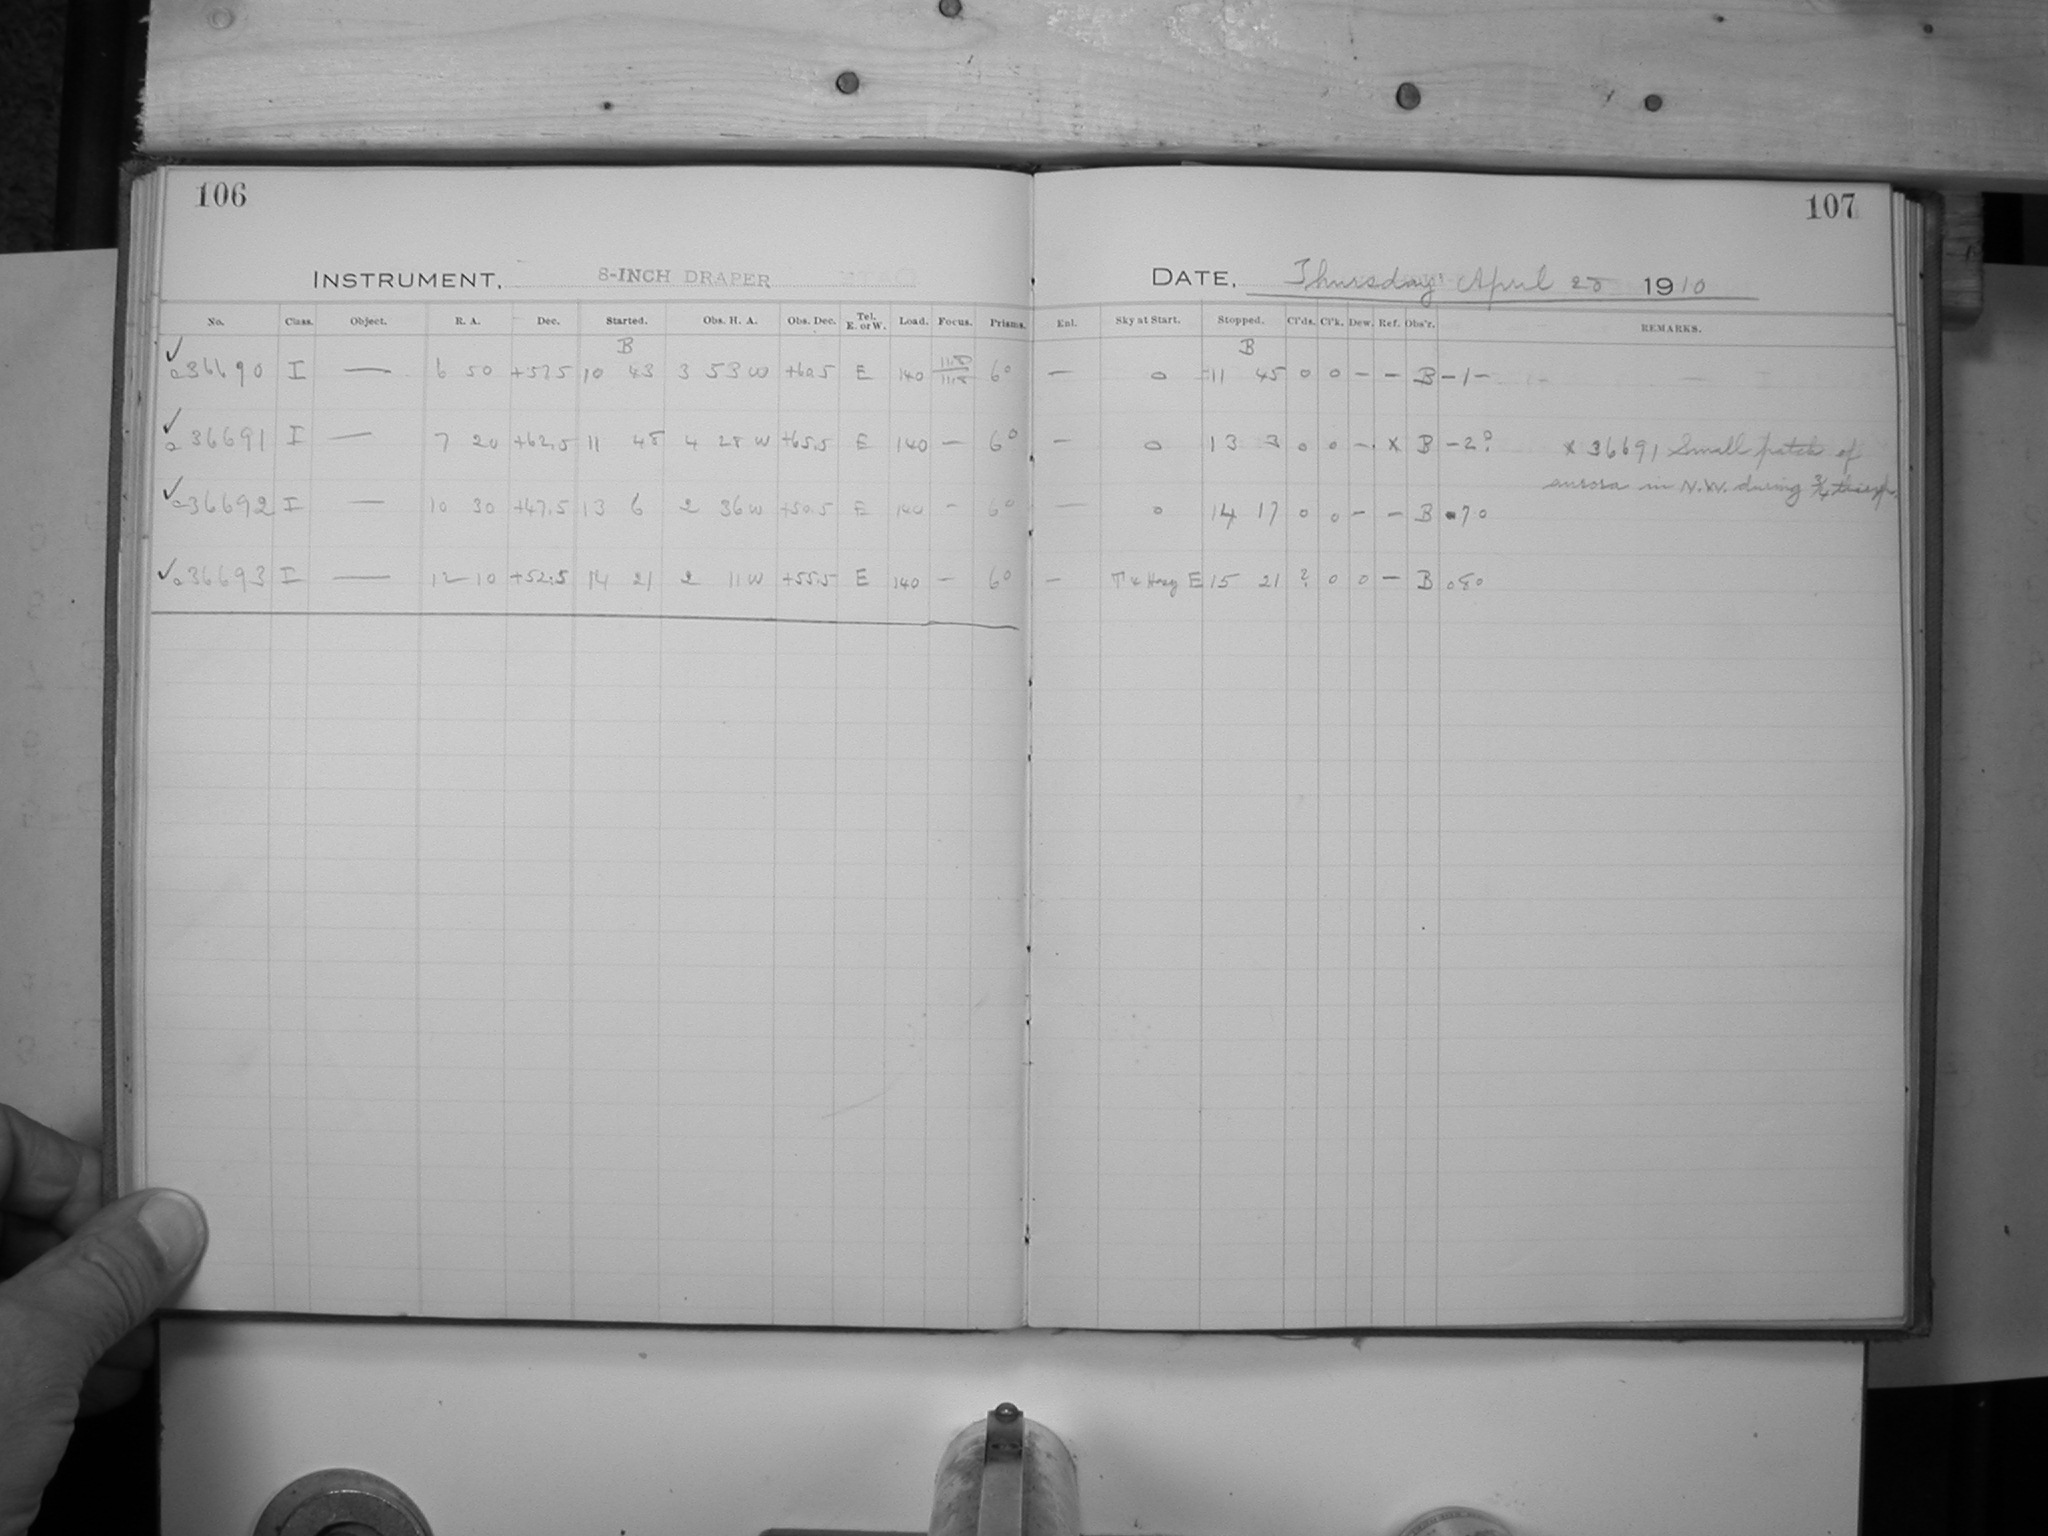 106
107
INSTRUMENT, 8-INCH DRAPER
DATE, Thursday April 28 1910
No. Class. Object. R. A. Dec. Started. Obs. H. A. Obs. Dec. Tel. E. or W. Load. Focus. Prisms. Enl. Sky at Start. Stopped. Cl'ds. Cl'k. Dew. Ref. Obs'r. REMARKS.
B B
✓ a 36690 I — 6 50 +57.5 10 43 3 53 W +60.5 E 140 6° — 0 11 45 0 0 — — B -1-
✓ a 36691 I — 7 20 +62.5 11 48 4 28 W +65.5 E 140 — 6° — 0 13 3 0 0 — x B x 36691 Small patch of
aurora in N.W. during
✓ a 36692 I — 10 30 +47.5 13 6 2 36 W +50.5 E 140 — 6° — 0 14 17 0 0 — — B 070
✓ a 36693 I — 12 10 +52.5 14 21 2 11 W +55.5 E 140 — 6° — Hazy E 15 21 ? 0 0 — B 080